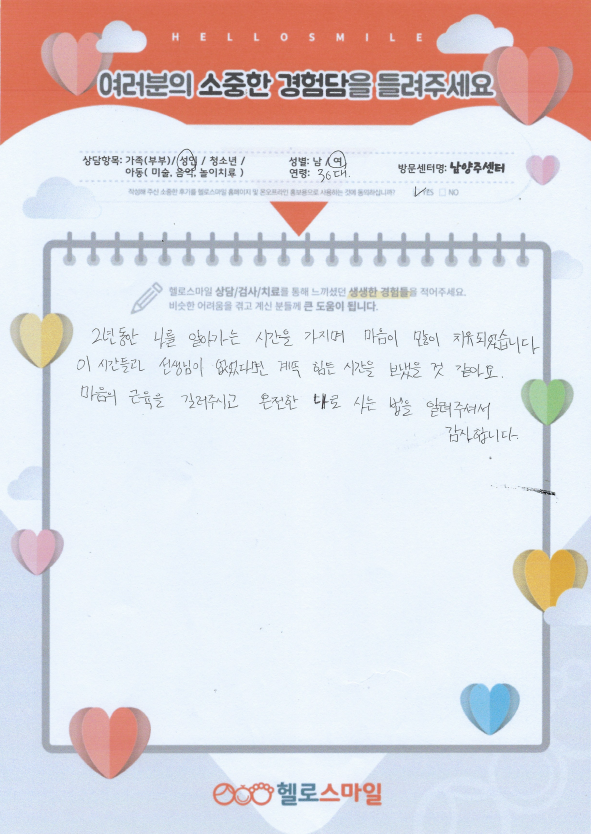 HELLOSMILE
여러분의 소중한 경험담을 들려주세요
상담항목: 가족(부부)/ 성인 / 청소년 /
아동( 미술, 음악, 놀이치료 )
성별: 남 / 여
연령: 30대
방문센터명: 남양주센터
작성해 주신 소중한 후기를 헬로스마일 홈페이지 및 온오프라인 홍보용으로 사용하는 것에 동의하십니까? YES NO
헬로스마일 상담/검사/치료를 통해 느끼셨던 생생한 경험들을 적어주세요.
비슷한 어려움을 겪고 계신 분들께 큰 도움이 됩니다.
2년동안 나를 알아가는 시간을 가지며 마음이 많이 치유되었습니다
이 시간들과 선생님이 없었다면 계속 힘든 시간을 보냈을 것 같아요.
마음의 근육을 길러주시고 온전한 나로 사는 법을 알려주셔서
감사합니다.
헬로스마일